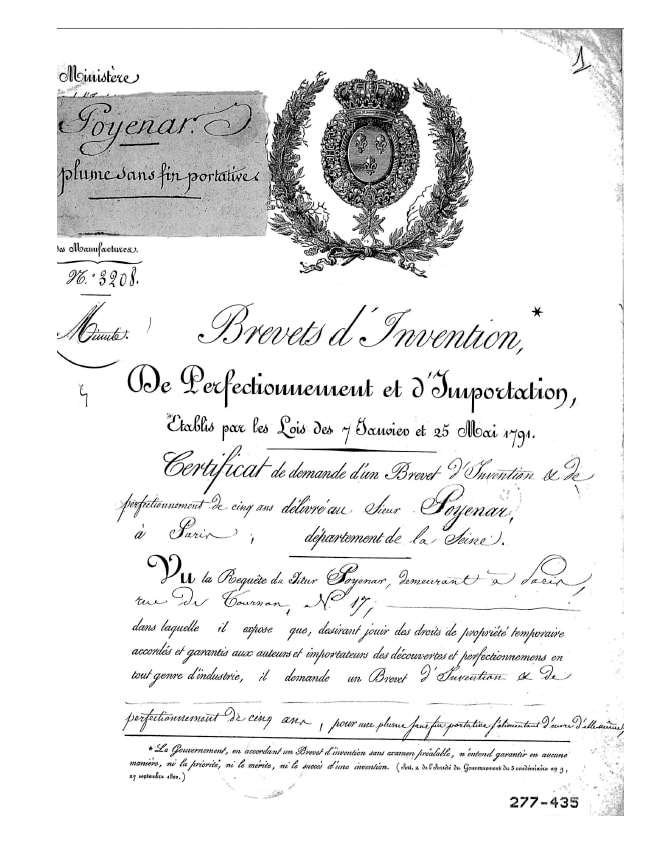 1
Ministère
Poyenar.
plume sans fin portative.
des Manufactures.
N.° 3208.
Minute.
Brevets d'Invention, *
De Perfectionnement et d'Importation,
Etablis par les Lois des 7 Janvier et 25 Mai 1791.
Certificat de demande d'un Brevet d'Invention & de
perfectionnement de cinq ans délivré au Sieur Poyenar,
à Paris, département de la Seine.
Vu la Requête du Sieur Poyenar, demeurant à Paris,
rue de Tournon, N.° 17,
dans laquelle il expose que, desirant jouir des droits de propriété temporaire
accordés et garantis aux auteurs et importateurs des découvertes et perfectionnemens en
tout genre d'industrie, il demande un Brevet d'Invention & de
perfectionnement de cinq ans, pour une plume sans fin portative s'alimentant d'encre d'elle-même,
* Le Gouvernement, en accordant un Brevet d'invention sans examen préalable, n'entend garantir en aucune
manière, ni la priorité, ni le mérite, ni le succès d'une invention. (Art. 2 de l'Arrêté du Gouvernement du 5 vendémiaire an 9,
27 septembre 1800.)
277-435